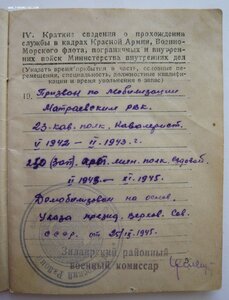 IV. Краткие сведения о прохождении
службы в кадрах Красной Армии, Военно-
Морского флота, пограничных и внутрен-
них войск Министерства внутренних дел
(Указать время прибытия в часть, основные пере-
мещения, специальность, должностные квалифи-
кации и время увольнения в запас)
10. Призван по мобилизации
Матраевским РВК.
23 кав. полк. Кавалерист.
V 1942 – II-1943 г.
арт. мин. полк. Ездовой.
II 1943 – XI-1945.
Демобилизован на основ.
Указа презид. Верхов. Сов.
СССР. от 25/IX-1945.
Зилаирский районный
военный комиссар